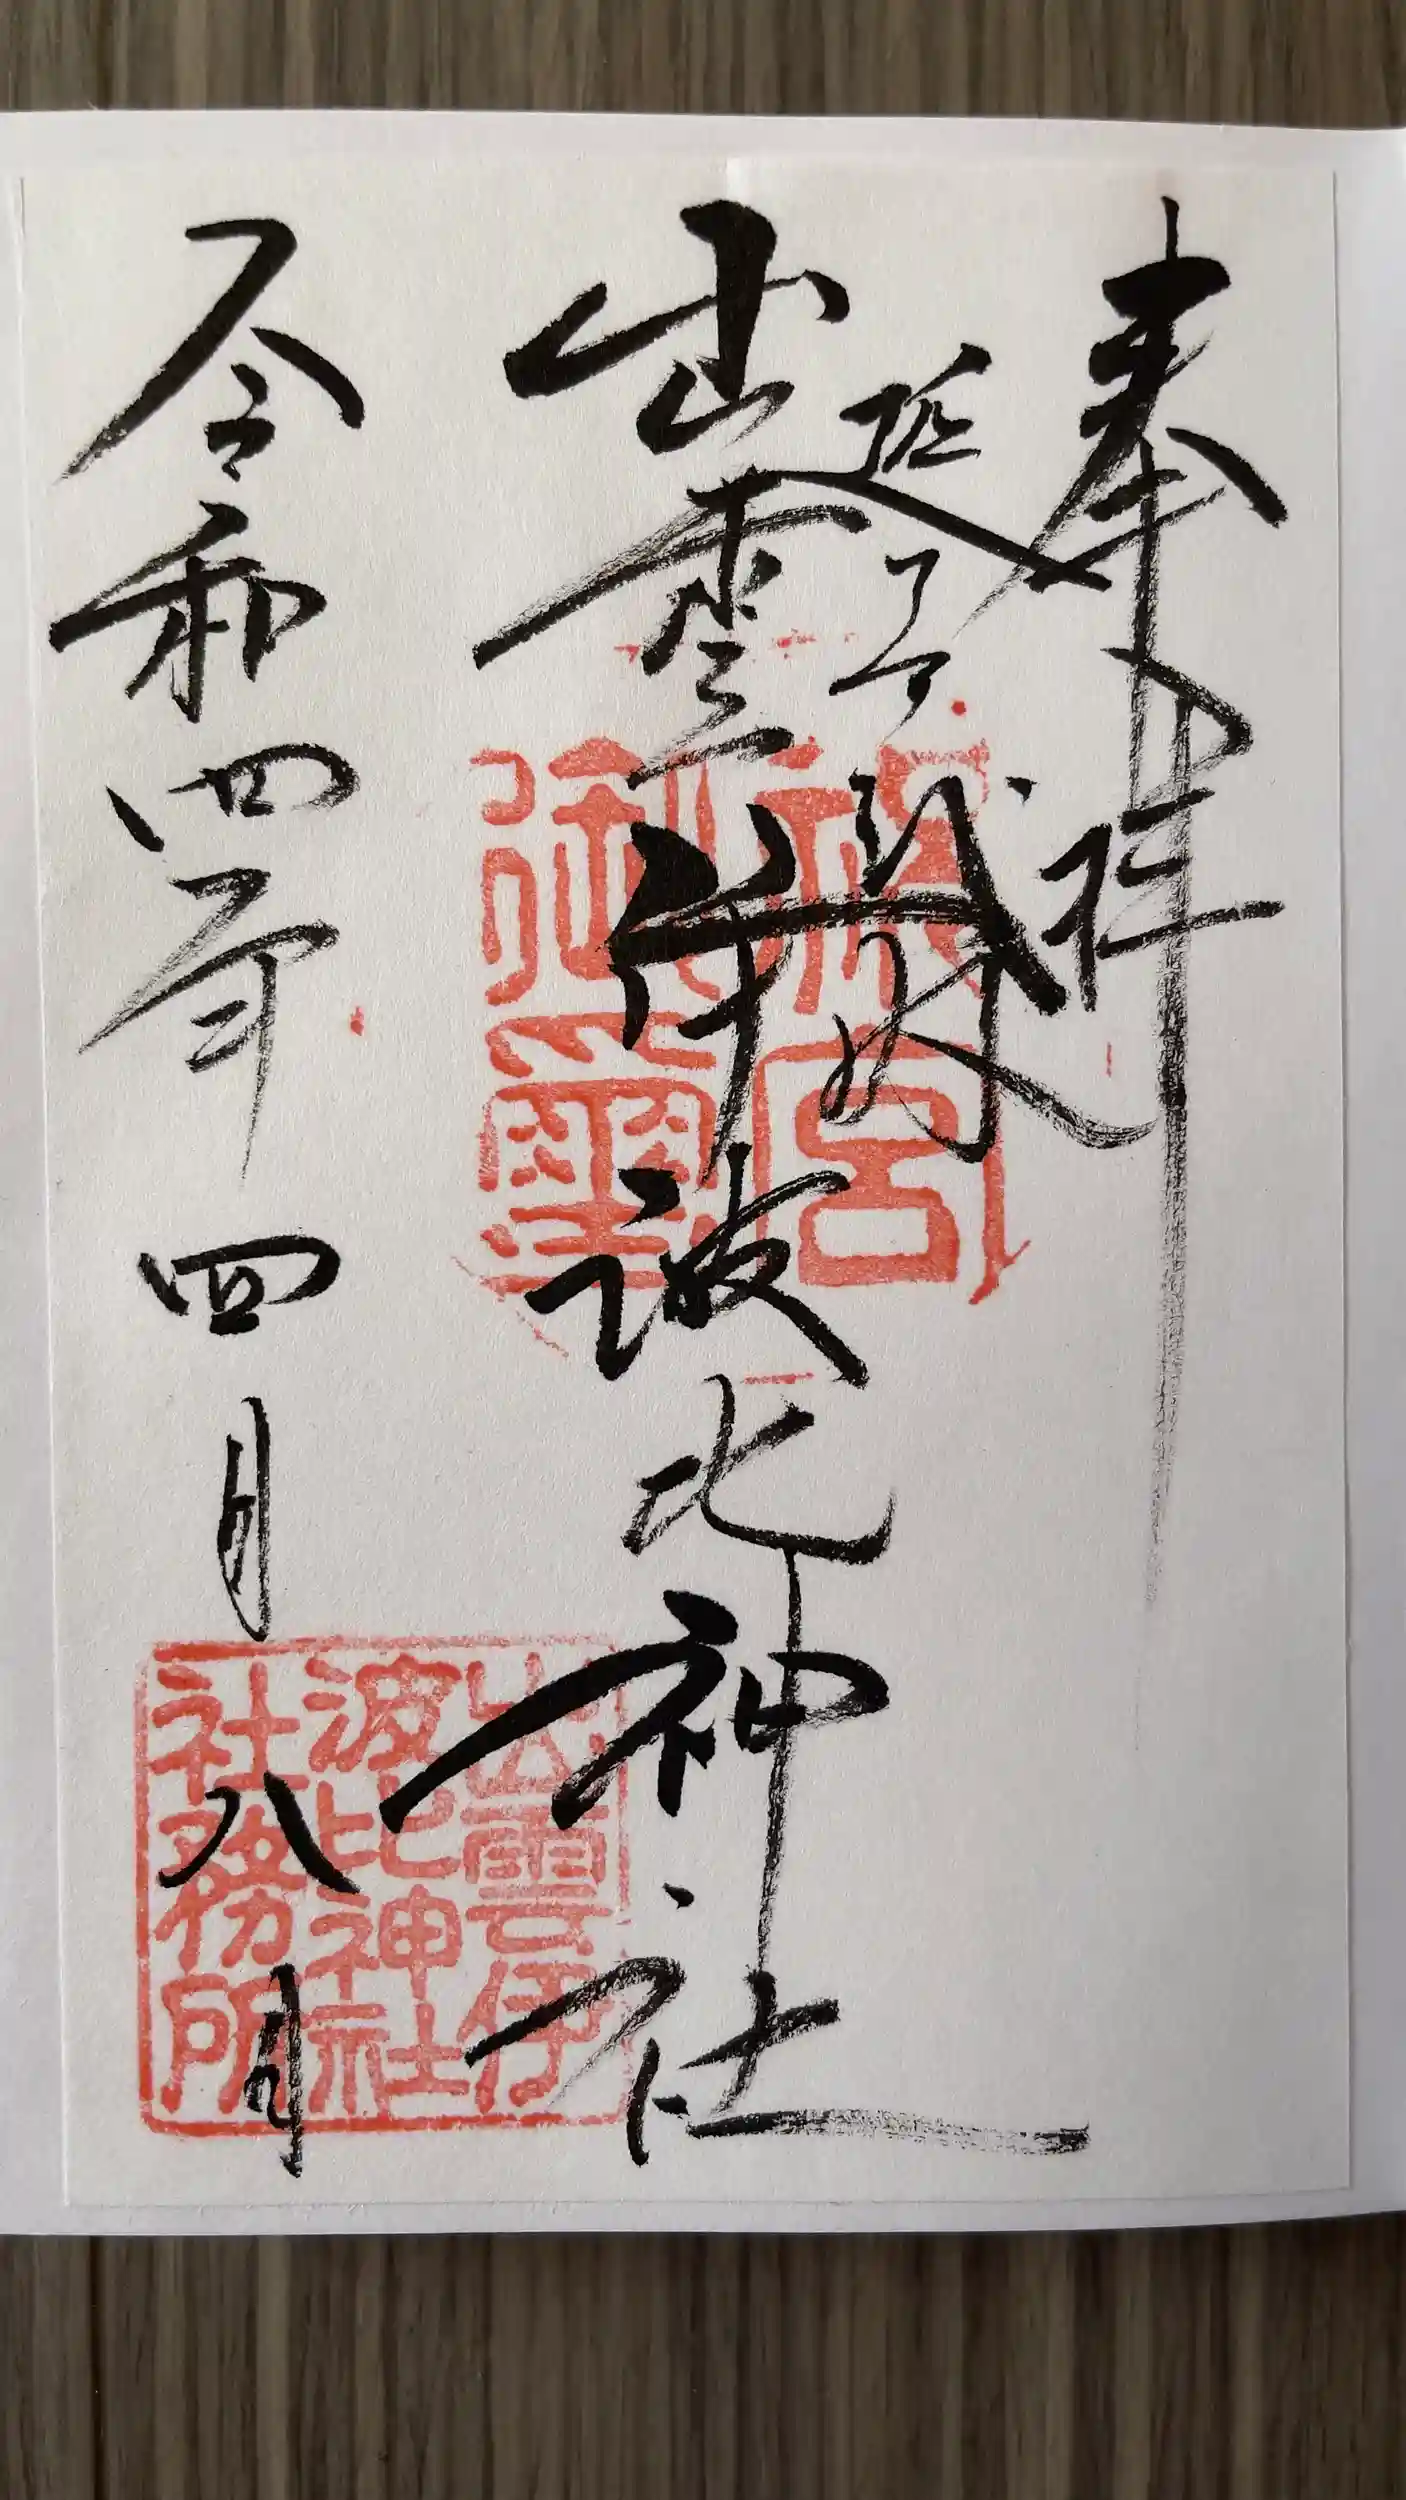 奉拝
延喜式内
出雲伊波比神社
令和四年四月八日
神宮
御璽
出雲伊
波比神社
社務所